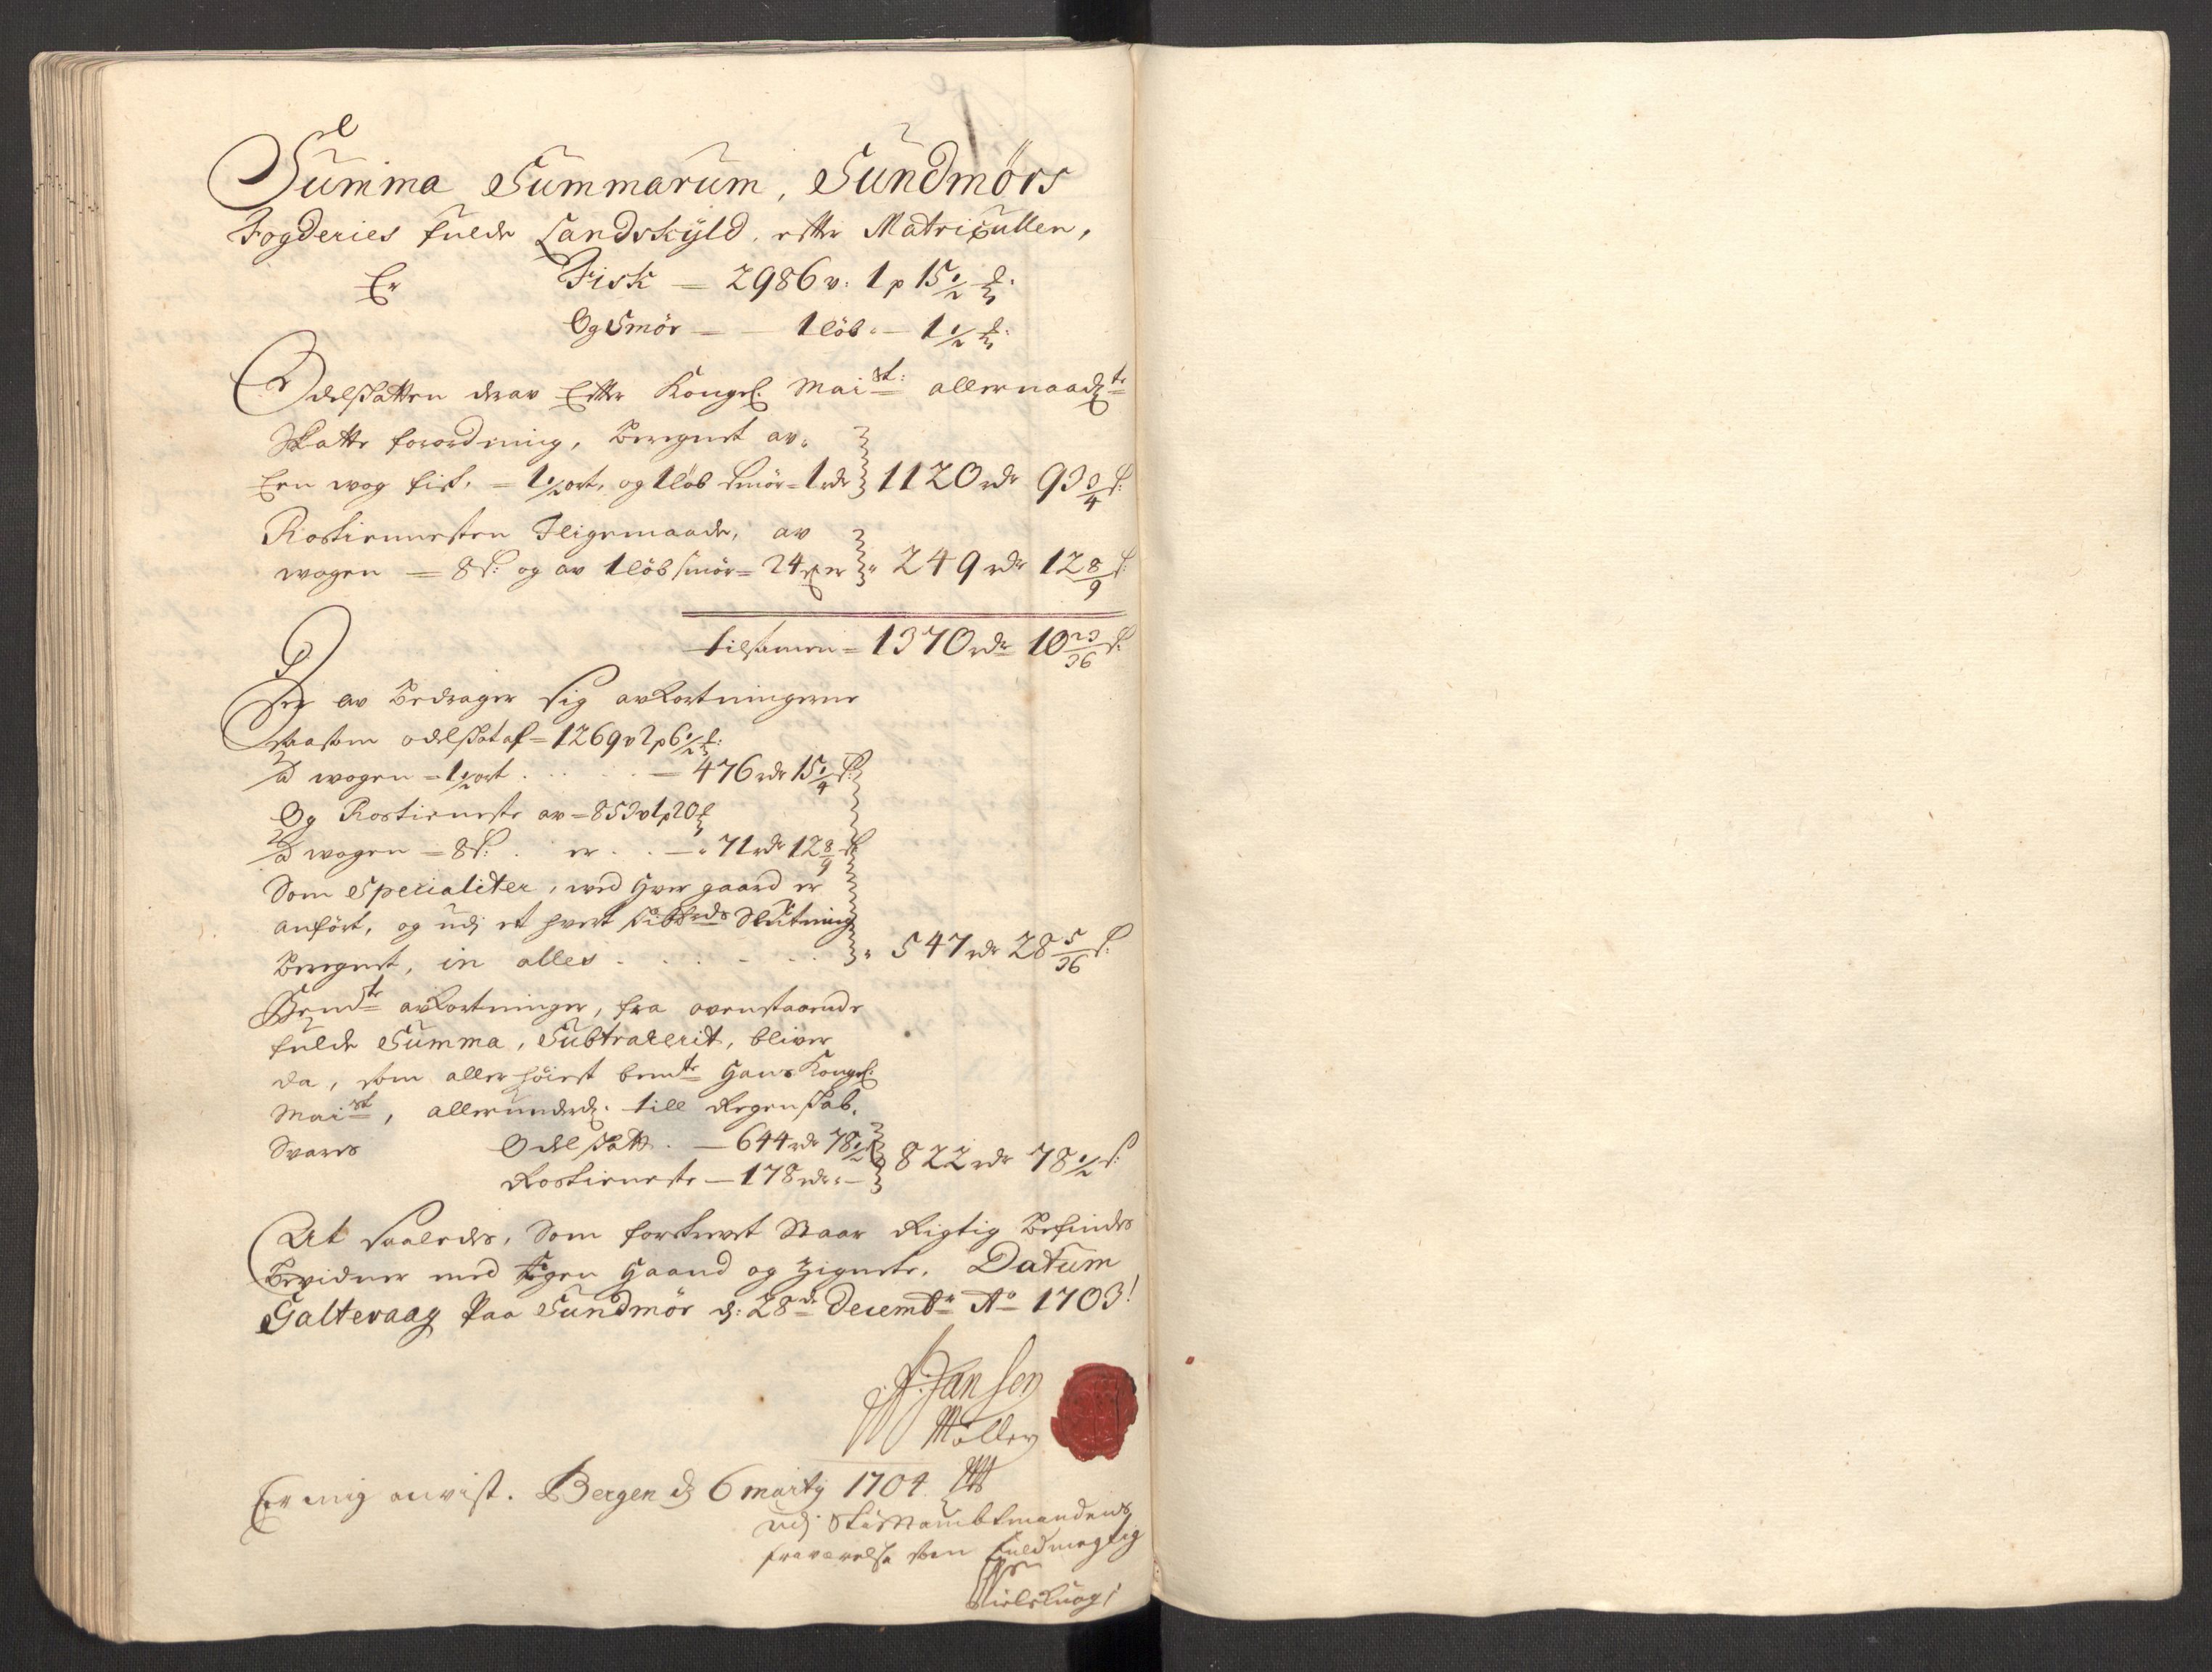 Summa Summarum, Sundmørs
Fogderies fulde Landskyld, efter Matriculen,
Er Fisk = 2986 v: 1 p 15 1/2 ℔:
Og Smör — — 1 löb — 1 1/2 ℔:
Odelskatten derav Efter Kongel. Mai st: allernaad te
Skatte forordning, Beregnet av
Een wog fisk = 1 1/2 ort, og 1 löb Smör = 1 rdr 1120 rdr 93 3/4 s:
Rostienesten Iligemaade, av
wogen = 8 s: og av 1 löb smör = 24 s er 249 rdr 12 8/9 s:
tilsamen = 1370 rdr 10 23/36 s:
Her av Bedrager sig avkortningerne
saasom odelskat af = 1269 v 2 p 6 1/2 ℔:
a wogen = 1 1/2 ort . . . . = 476 rdr 15 1/4 s:
Og Rostieneste av = 853 v 1 p 20 ℔
a wogen = 8 s: . er . . — 71 rdr 12 8/9 s
Som Specialiter, ved hver gaard er
anfört, og udj et hvert Slutning
Beregnet, in alles . . . . . . 547 rdr 28 5/36 s:
Bem te avkortninger, fra ovenstaaende
fulde Summa, Subtraherit, bliver
da, som aller höiest bem te Hans Kongel.
Mai st, allerunderd. till Regenskab,
Svares Odelskatt . — 644 rdr 78 1/2 s 822 rdr 78 1/2 s:
Rostieneste — 178 rdr —
At saaledes, Som forskrevet Staar Rigtig Befindes
Bevidner med Egen Haand og Zignete, Datum
Galtevaag Paa Sundmör d: 28 de Decemb r Ao 1703!
Jansen
Möller
Er mig anvist. Bergen d 6 martij 1704.
udj Stiftsambtmandens
fraværelse som fuldmegtig
Niels Knag